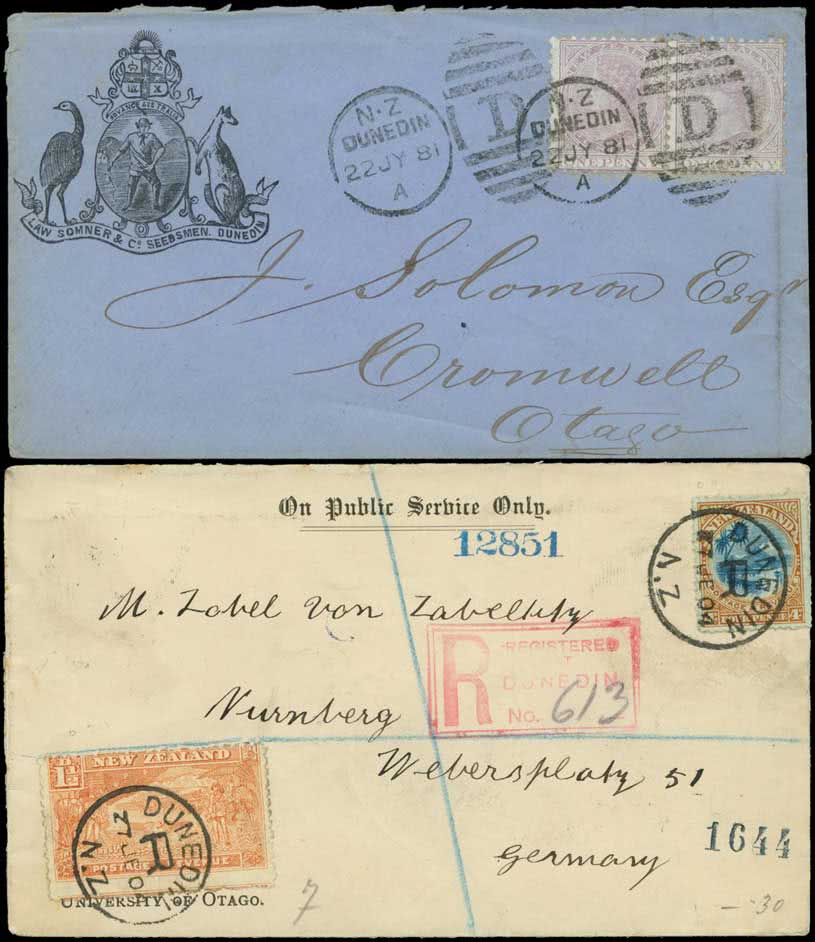 ADVANCE AUSTRALIA
LAW SOMNER & Co SEEDSMEN. DUNEDIN
N.Z
DUNEDIN
22 JY 81
A
D
N.Z
DUNEDIN
22 JY 81
A
D
ONE PENNY
J. Solomon Esqr
Cromwell
Otago
On Public Service Only.
12851
NEW ZEALAND
DUNEDIN
R
N.Z
M. Zobel von Zabeltitz
R
REGISTERED
DUNEDIN
No. 613
Nurnberg
Webersplatz 51
Germany
1644
1½D
NEW ZEALAND
DUNEDIN
R
N.Z
UNIVERSITY OF OTAGO.
7
30